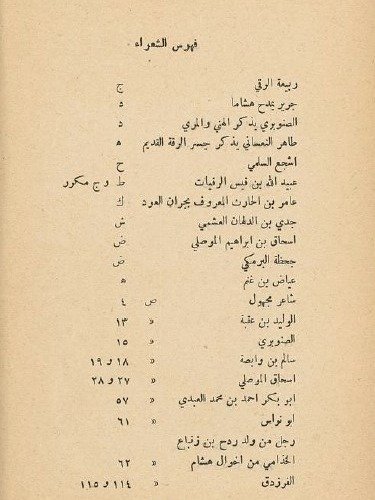 فهرس الشعراء
ربيعة الرقي ج
جرير يمدح هشاما د
الصنوبري يذكر الهني والمري د
طاهر النعساني يذكر جسر الرقة القديم ه
اشجع السلمي ح
عبيد الله بن قيس الرقيات ط و ج مكرر
عامر بن الحارث المعروف بجران العود ك
جدي بن الدلهان العشمي ش
اسحاق بن ابراهيم الموصلي ض
جحظة البرمكي ض
عياض بن غنم ه
شاعر مجهول ص ٤
الوليد بن عقبة » ١٣
الصنوبري » ١٥
سالم بن وابصة » ١٨ و ١٩
اسحاق الموصلي » ٢٧ و ٢٨
ابو بكر احمد بن محمد العبدي » ٥٧
ابو نواس » ٦١
رجل من ولد ردح بن زنباع
الجذامي من اخوال هشام » ٦٢
الفرزدق » ١١٤ و ١١٥